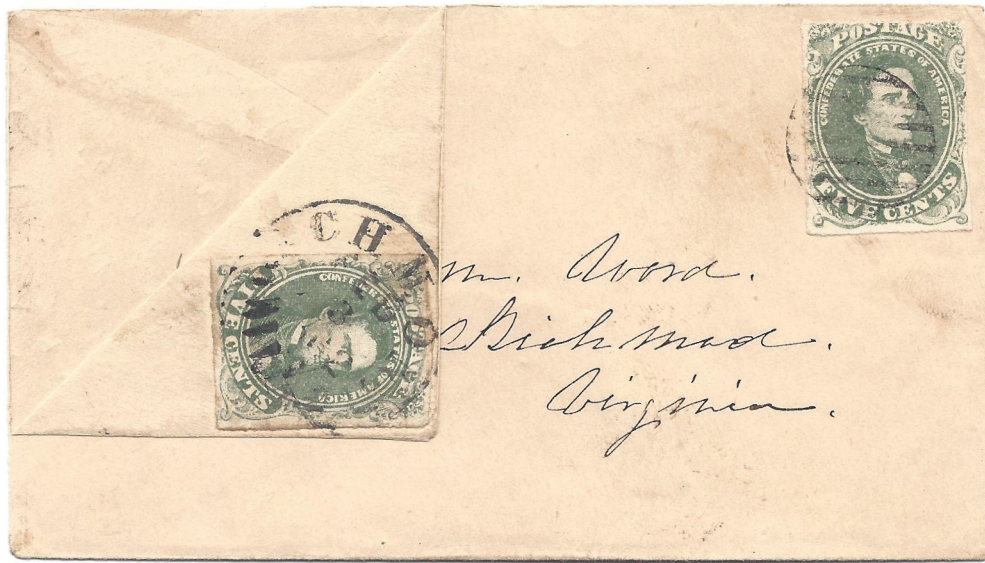 POSTAGE
CONFEDERATE STATES OF AMERICA
FIVE CENTS
CONFEDERATE STATES OF AMERICA
FIVE CENTS
Mr. Word.
Richmod.
Virginia.